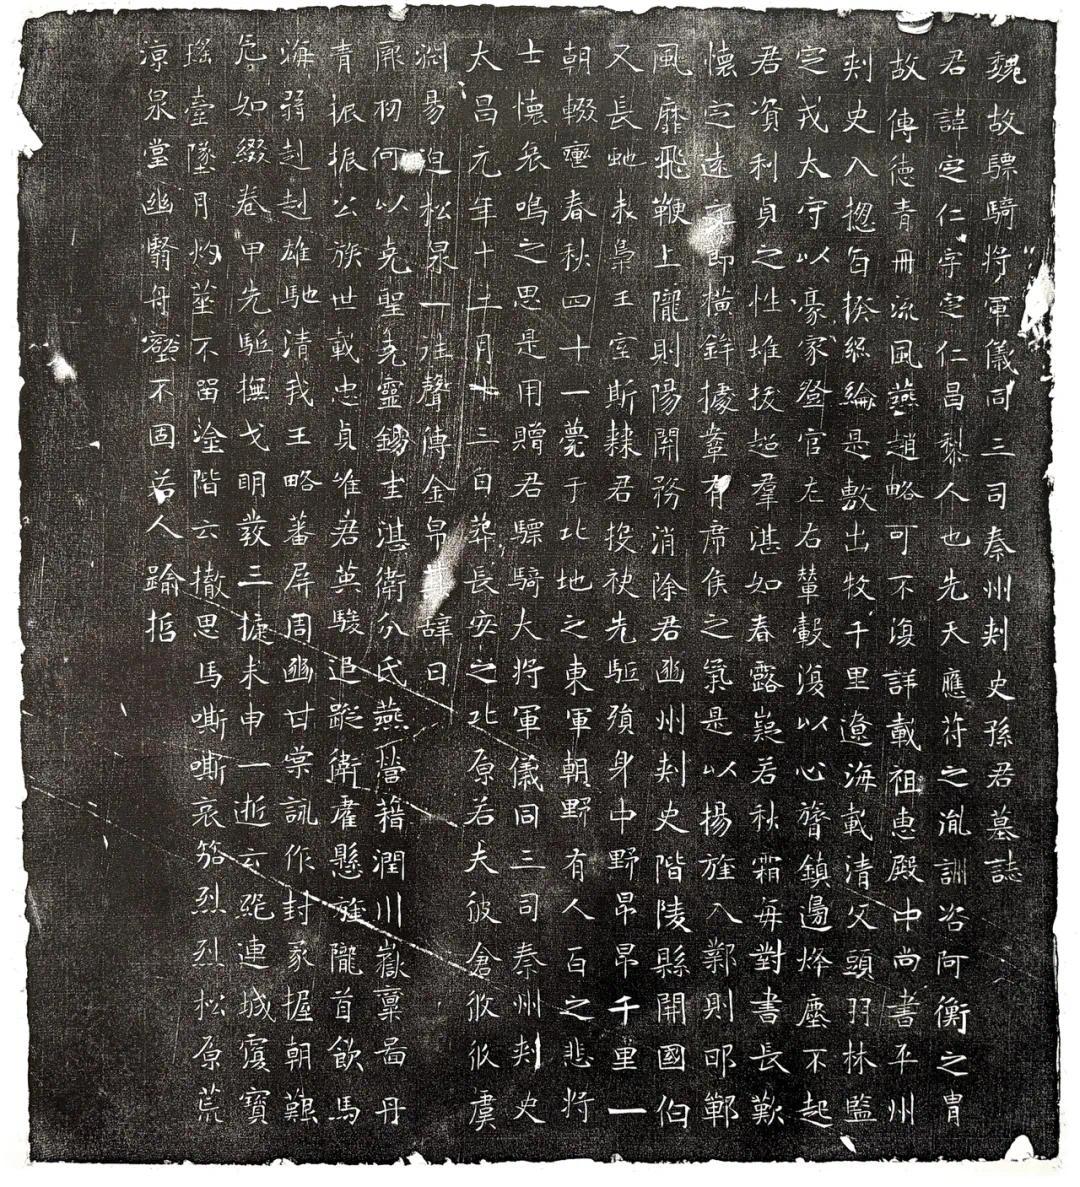 魏故驃騎將軍儀同三司秦州刺史孫君墓誌
君諱定仁字定仁昌黎人也先天應苻之胤訓咨阿衡之胄
故傳德青冊流風燕趙略可不復詳載祖惠殿中尚書平州
刺史入摠百揆絲綸是敷出牧千里遼海載清父頭羽林監
定戎太守以豪家登官左右輦轂復以心膂鎮邊烽塵不起
君資利貞之性堆拔超羣湛如春露嶷若秋霜每對書長歎
懷定遠之節橫鉾據鞌有席侯之氣是以揚旌入鄴則邯鄲
風靡飛鞭上隴則陽關務消除君幽州刺史階陵縣開國伯
又長虵未梟王室斯隸君投袂先駈殞身中野昂昂千里一
朝輟壥春秋四十一薨于北地之東軍朝野有人百之悲將
士懷哀鳴之思是用贈君驃騎大將軍儀同三司秦州刺史
太昌元年十二月十三日葬長安之北原若夫彼倉攸攸虞
淵易迫松泉一往聲傳金帛 辭曰
厥初何以堯聖克靈錫圭湛衛分氏燕營籍潤川嶽稟啚丹
青振振公族世載忠貞惟君英駿追蹤衛霍懸旌隴首飲馬
海弱赳赳雄馳清我王略蕃屏周幽甘棠詠作封豕握朝艱
危如綴卷甲先駈撫戈明發三捷未申一逝云 連城癈寶
瑤臺墜月灼 不留塗階云撤思馬嘶嘶哀笳烈烈松原荒
涼泉堂幽翳舟壑不固若人踰